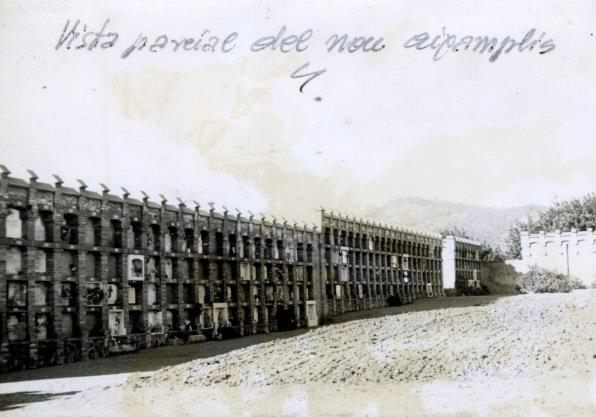 Vista parcial del nou aixamplis